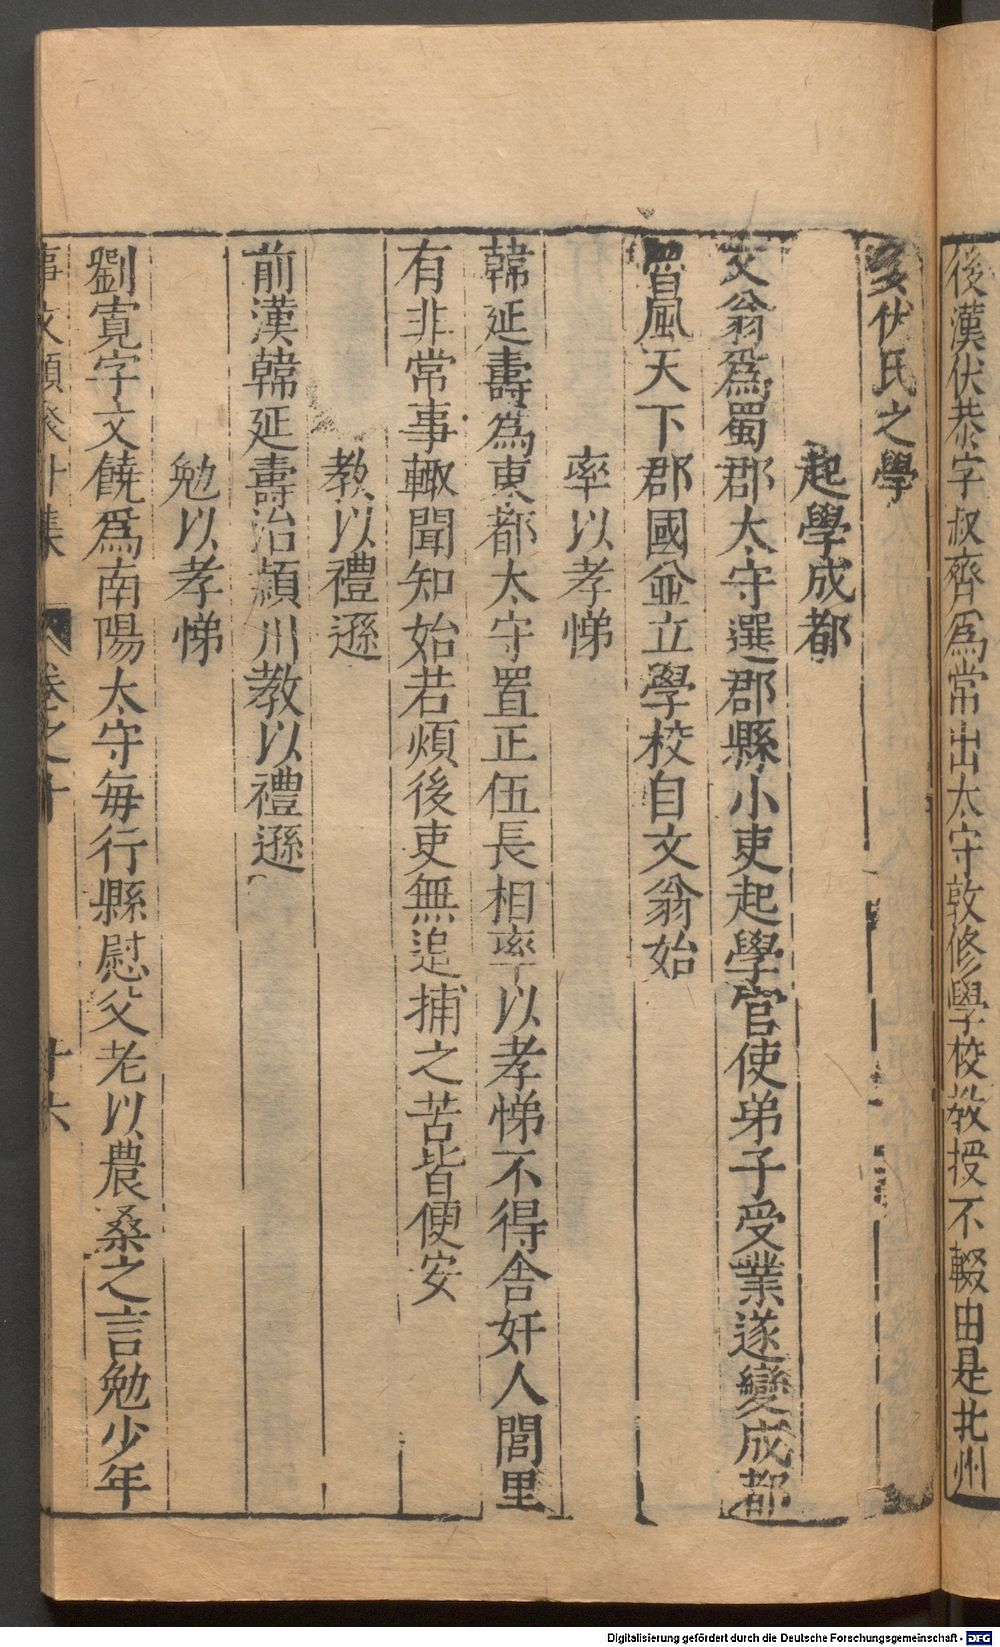 後漢伏恭字叔齊爲常出太守敦修學校教授不輟由是北州
多伏氏之學
起學成都
文翁爲蜀郡太守選郡縣小吏起學官使弟子受業遂變成都
習風天下郡國並立學校自文翁始
率以孝悌
韓延壽爲東都太守置正伍長相率以孝悌不得舍奸人閭里
有非常事輙聞知始若煩後吏無追捕之苦皆便安
教以禮遜
前漢韓延壽治潁川教以禮遜
勉以孝悌
劉寬字文饒爲南陽太守每行縣慰父老以農桑之言勉少年
事文類聚外集 卷之十 廿六
Digitalisierung gefördert durch die Deutsche Forschungsgemeinschaft - DFG